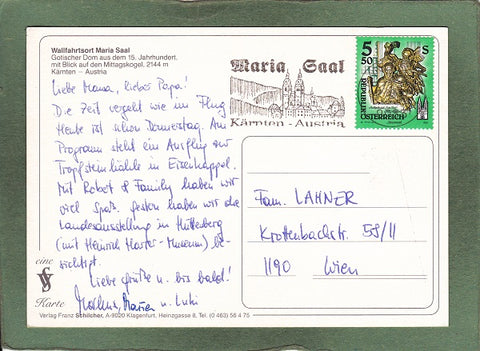 Wallfahrtsort Maria Saal
Gotischer Dom aus dem 15. Jahrhundert.
mit Blick auf den Mittagskogel, 2144 m
Kärnten – Austria
Liebe Mama, lieber Papa!
Die Zeit vergeht wie im Flug
Heute ist schon Donnerstag. Am
Programm steht ein Ausflug zur
Tropfsteinhöhle in Eisenkappel.
Mit Robert & Family haben wir
viel Spaß. Gestern haben wir die
Landesausstellung in Hüttenberg
(mit Heinrich Harrer-Museum) be-
sichtigt.
Liebe Grüße u. bis bald!
u. Luki
eine
Karte
Verlag Franz Schilcher, A-9020 Klagenfurt, Heinzgasse 8, Tel. (0 463) 56 4 75
Maria Saal
Kärnten - Austria
5 S
50
REPUBLIK
ÖSTERREICH
Fam. LAHNER
Krottenbachstr. 59/11
1190 Wien